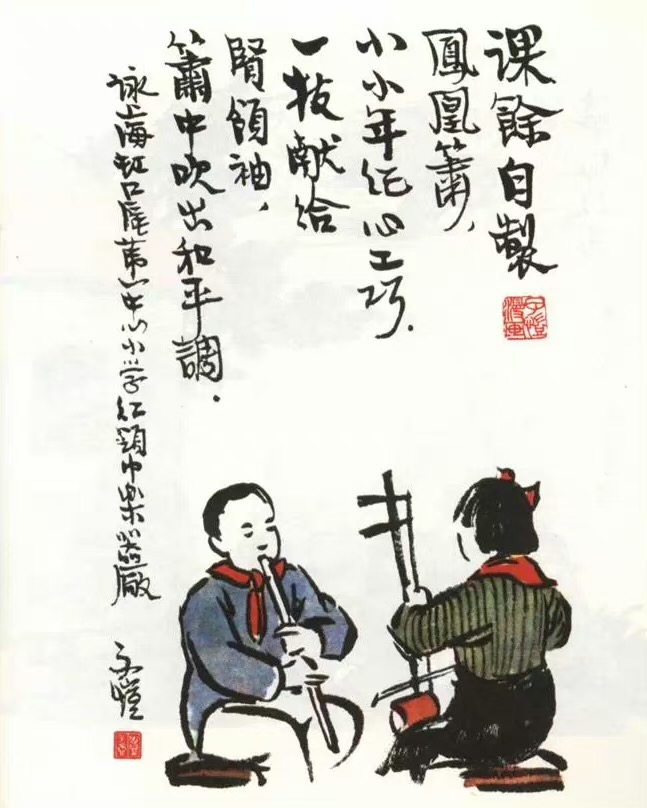 课餘自製
鳳凰簫，
小小年纪心工巧．
一枝献给
賢領袖，
簫中吹出和平調．
詠上海虹口區苐一中心小学红領巾樂器廠
子愷
子愷漫画